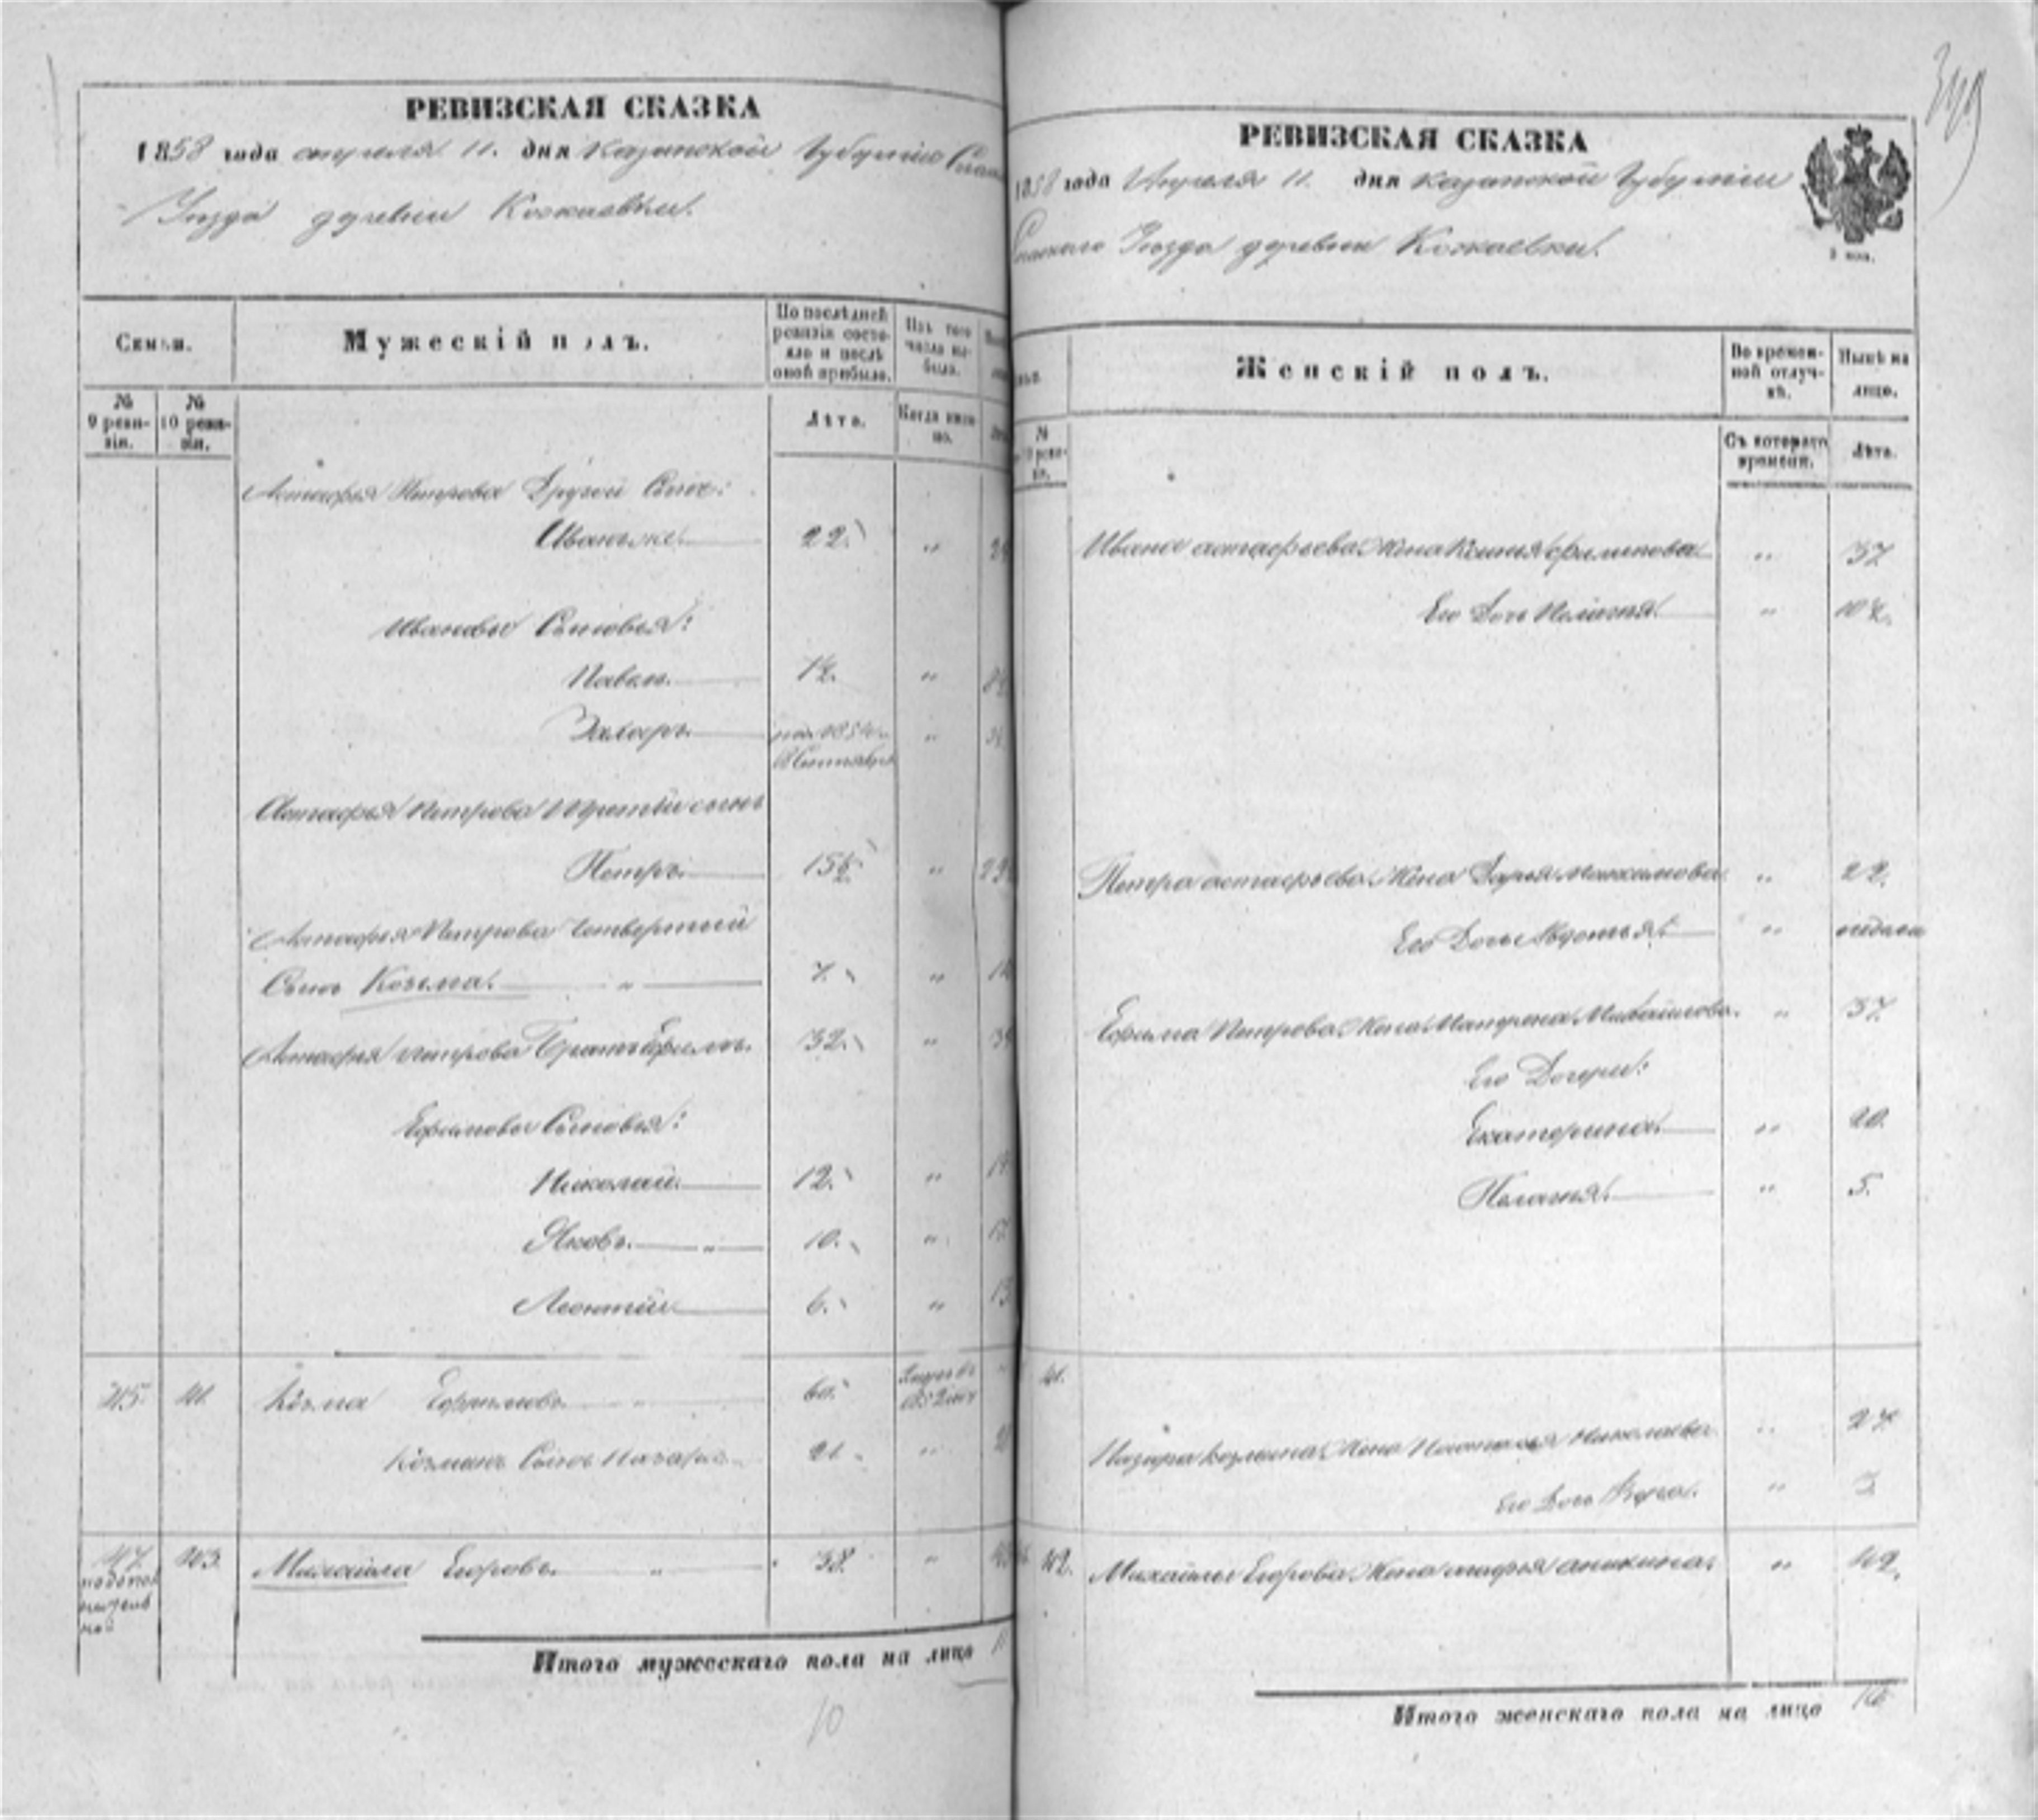 РЕВИЗСКАЯ СКАЗКА
1858 года апреля 11. дня Казанской Губернии
Уезда деревни Кожаевки.
Семьи.
Мужескій полъ.
По послѣдней ревизіи состояло и послѣ оной прибыло.
Изъ того числа выбыло.
№ 9 ревизіи.
№ 10 ревизіи.
Лѣта.
Когда именно.
Астафья Петрова Другой Сынъ:
Иванъ же. 22.
Ивановы Сыновья:
Павелъ. 1/2.
Захаръ.
Астафья Петрова Третій сынъ
Петръ. 15 1/2.
Астафья Петрова Четвертый
Сынъ Козьма. 7.
Астафья Петрова Братъ Ефимъ. 32.
Ефимовы Сыновья:
Николай. 12.
Яковъ. 10.
Леонтій 6.
41. Козма Ефимовъ. 60.
Козминъ Сынъ Назаръ. 21.
43. Михайла Егоровъ. 38.
Итого мужескаго пола на лицо
10
РЕВИЗСКАЯ СКАЗКА
1858 года Апреля 11. дня Казанской Губернии
Спаскаго Уезда деревни Кожаевки.
Женскій полъ.
Во временной отлучкѣ.
Нынѣ на лицо.
№ 10 ревизіи.
Съ котораго времени.
Лѣта.
Ивана астафьева Жена Ксинья филипова „ 37
Его Дочь Пелагия. „ 10 1/2.
Петра астафьева Жена Дарья Максимова „ 22.
Его Дочь Авдотья. „ недели
Ефима Петрова Жена Матрена Михайлова. „ 37
Его Дочери:
Екатерина. „ 20.
Пелагия. „ 5.
41.
Назара козмина Жена Николаева „ 27.
Его Дочь „ 3
42. Михайлы Егорова Жена аникина. „ 42.
Итого женскаго пола на лицо